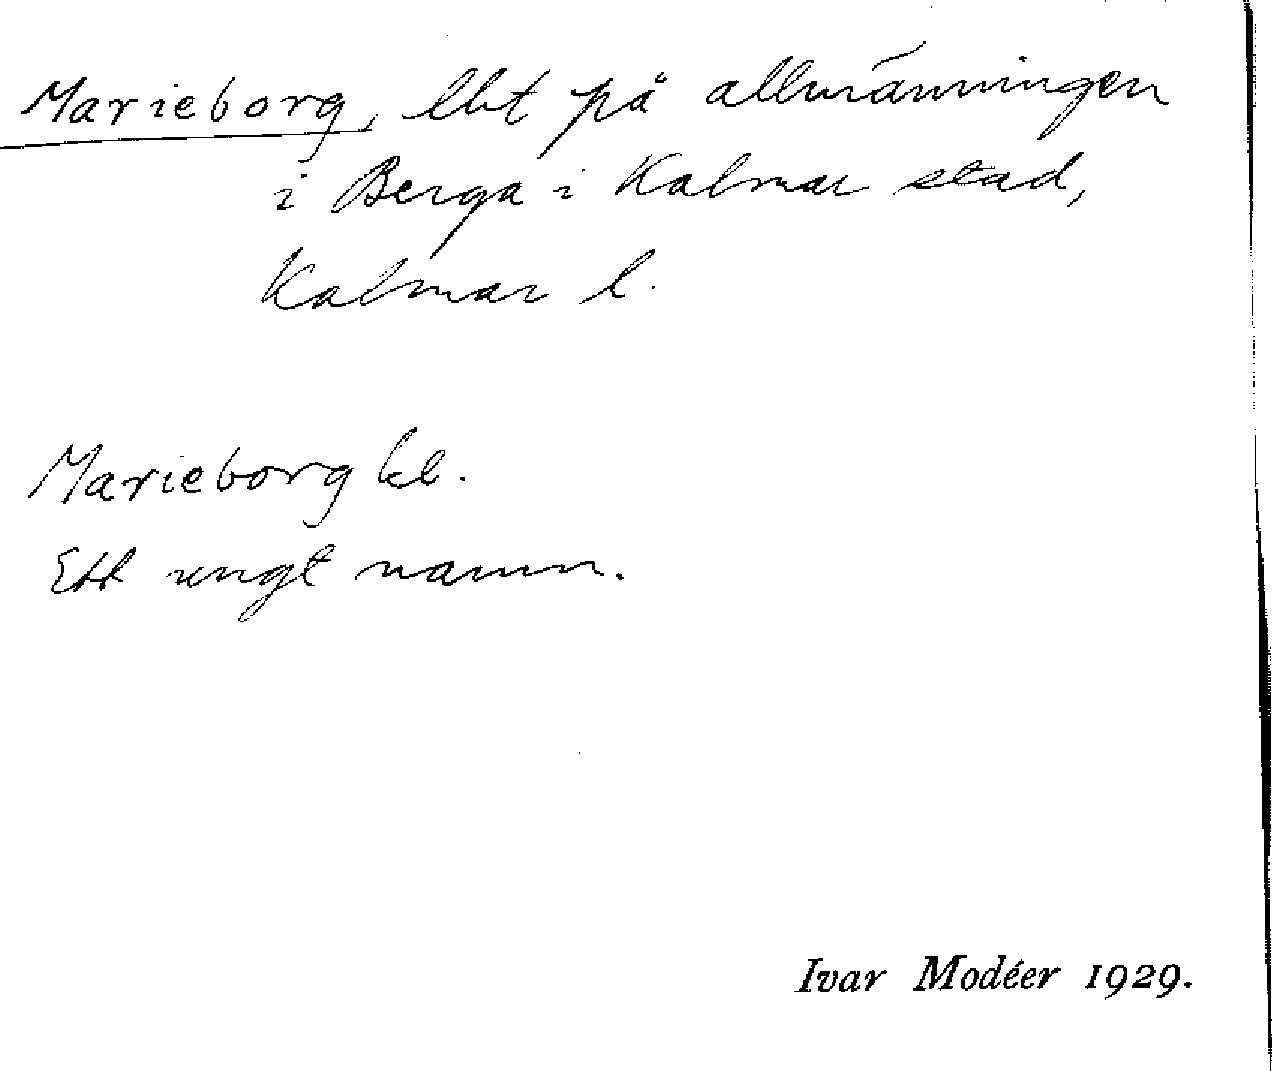 Marieborg, lht på allmänningen
i Berga i Kalmar stad,
Kalmar l.
Marieborg kl.
Ett ungt namn.
Ivar Modéer 1929.